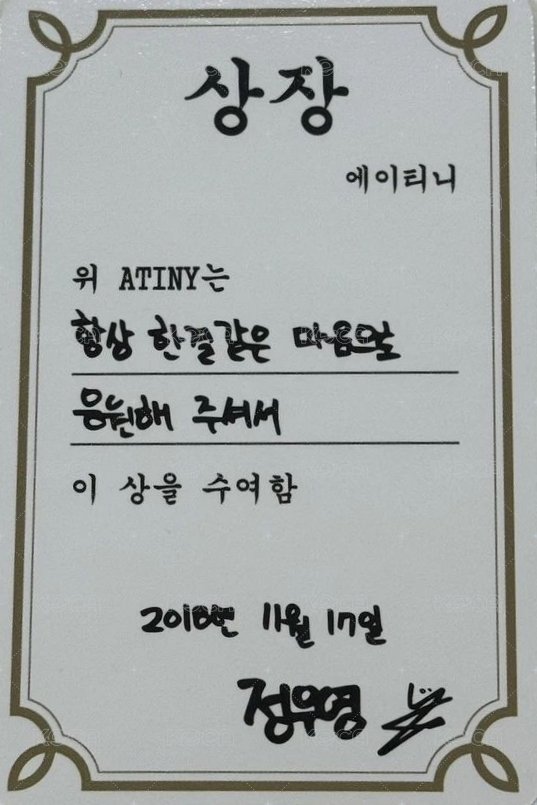 상장
에이티니
위 ATINY는
항상 한결같은 마음으로
응원해 주셔서
이 상을 수여함
2018년 11월 17일
정우영